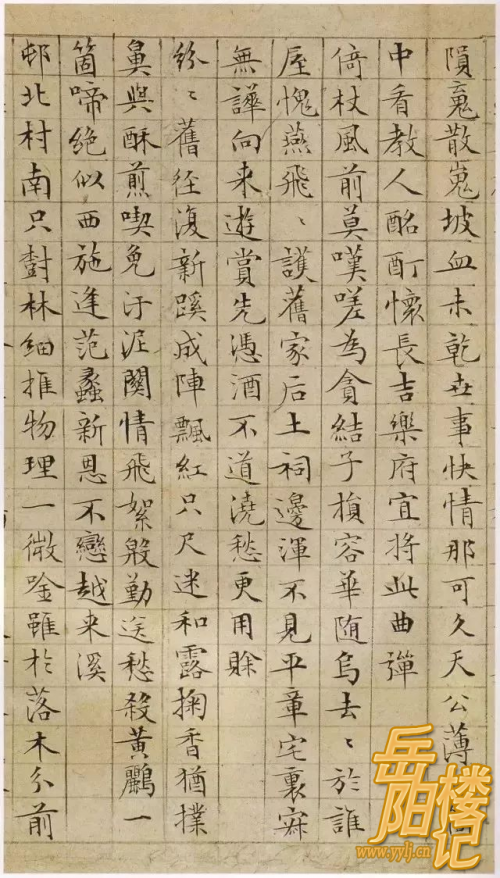 隕䰟散嵬坡血未乾世事快情那可久天公薄
中看教人酩酊懷長吉樂府宜將此曲彈
倚杖風前莫嘆嗟為貪結子損容華随烏去〻於誰
屋愧燕飛〻護舊家后土祠邊渾不見平章宅裏寂
無譁向来遊賞先憑酒不道澆愁更用賒
紛〻舊径復新蹊成陣飄紅只尺迷和露掬香猶撲
鼻與酥煎喫免汙泥關情飛絮殷勤送愁殺黄鸝一
箇啼絶似西施逢范蠡新恩不戀越来溪
邨北村南只樹林細推物理一微唫雖於落木分前
岳阳楼记
www.yylj.cn